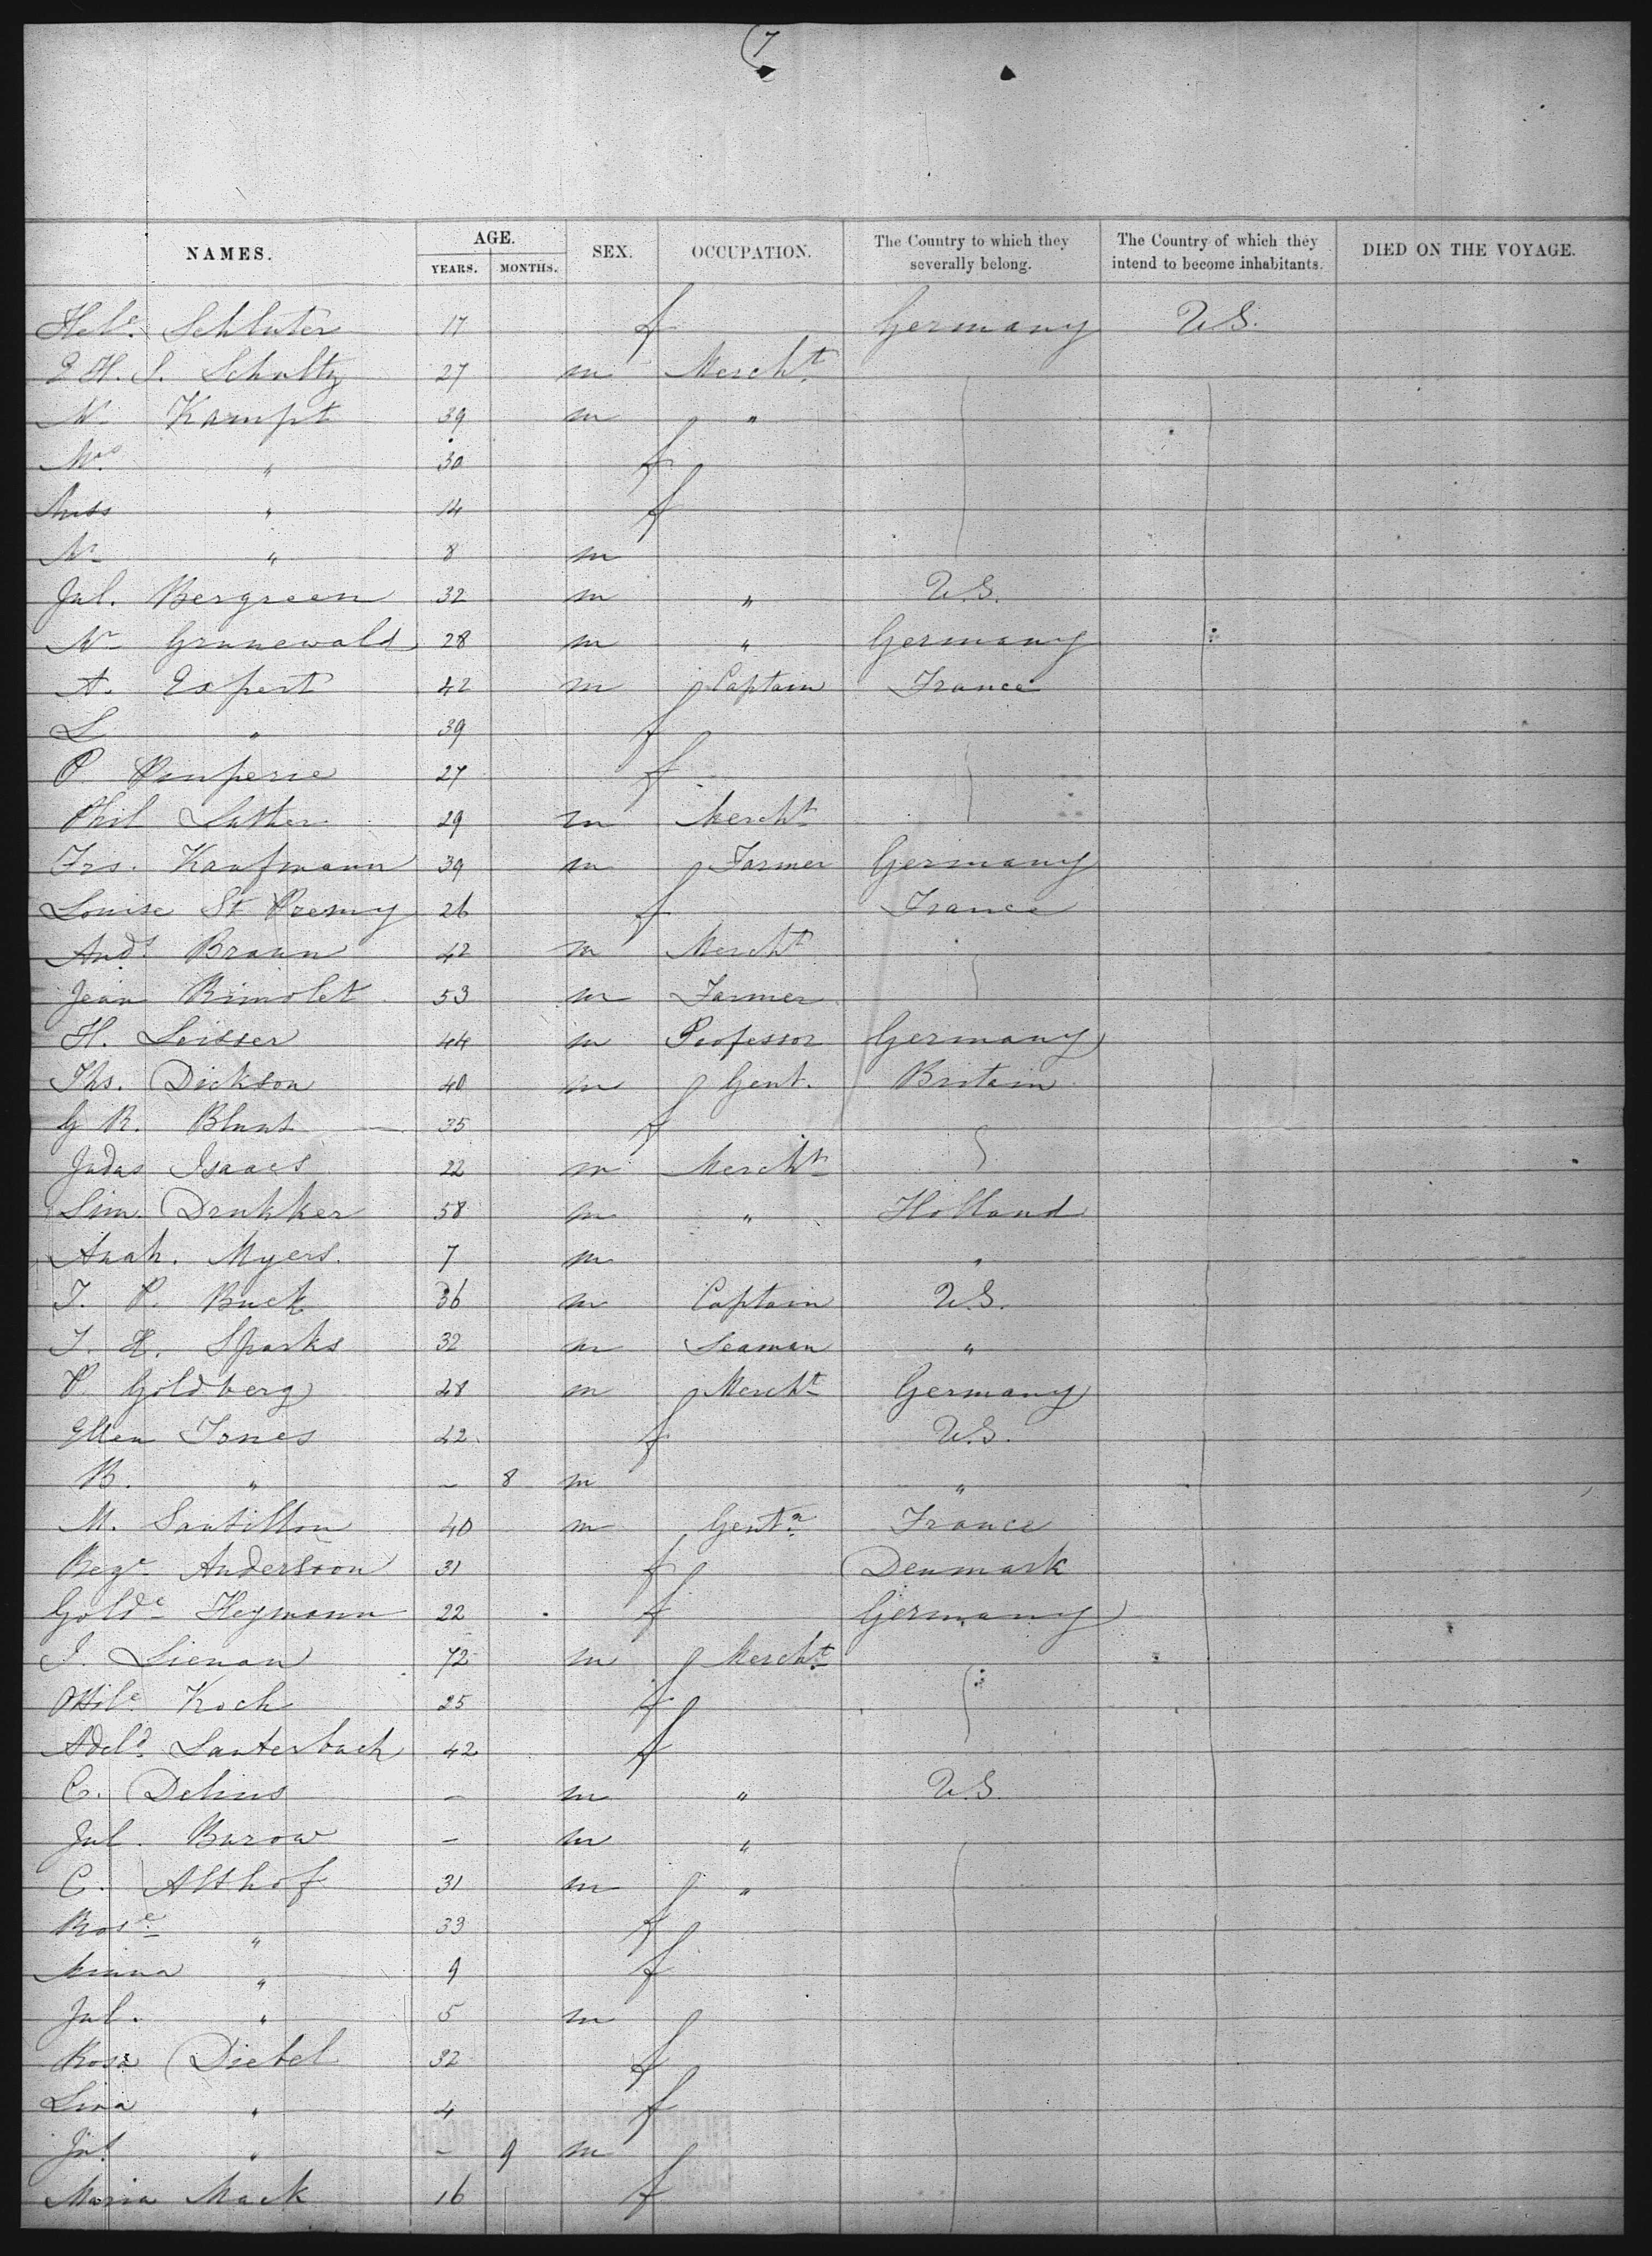 7
NAMES. AGE. YEARS. MONTHS. SEX. OCCUPATION. The Country to which they severally belong. The Country of which they intend to become inhabitants. DIED ON THE VOYAGE.
Hele. Schluter 17 f Germany U.S.
E. H. S. Schultz 27 m Mercht
Mr Kampt 39 m "
Mrs " 30 f
Miss " 14 f
Mr " 8 m
Jul. Bergreen 32 m " U.S.
Mr Grunewald 28 m " Germany
A. Expert 42 m Captain France
L " 39 f
P. 27 f
Phil Luther 29 m Mercht
Frs. Kaufmann 39 m Farmer Germany
Louise St 26 f France
Andr Braun 42 m Mercht
Jean Rimolet 53 m Farmer
H. Leisser 44 m Professor Germany
Ths. Dickson 40 m Gent. Britain
G R. Blunt 35 f
Judas Isaacs 22 m Mercht
Sim. Drukker 58 m " Holland
Myers. 7 m "
T. P. Buck 36 m Captain U.S.
T. H. Sparks 32 m Seaman "
P. Goldberg 28 m Mercht Germany
Ellen Jones 42 f U.S.
B. " – 8 m "
M. Santillon 40 m Gentn France
Andersoon 31 f Denmark
Golde Heymann 22 f Germany
J. Lienau 72 m Mercht
Koch 25 f
Adeld Lauterbach 42 f
C. Delius – m " U.S.
Jul. Burow – m "
C. Althof 31 m "
Rose " 33 f
Minna " 9 f
Jul. " 5 m
Rosa Diebel 32 f
Lina " 4 f
Jul " – 9 m
Maria Mack 16 f